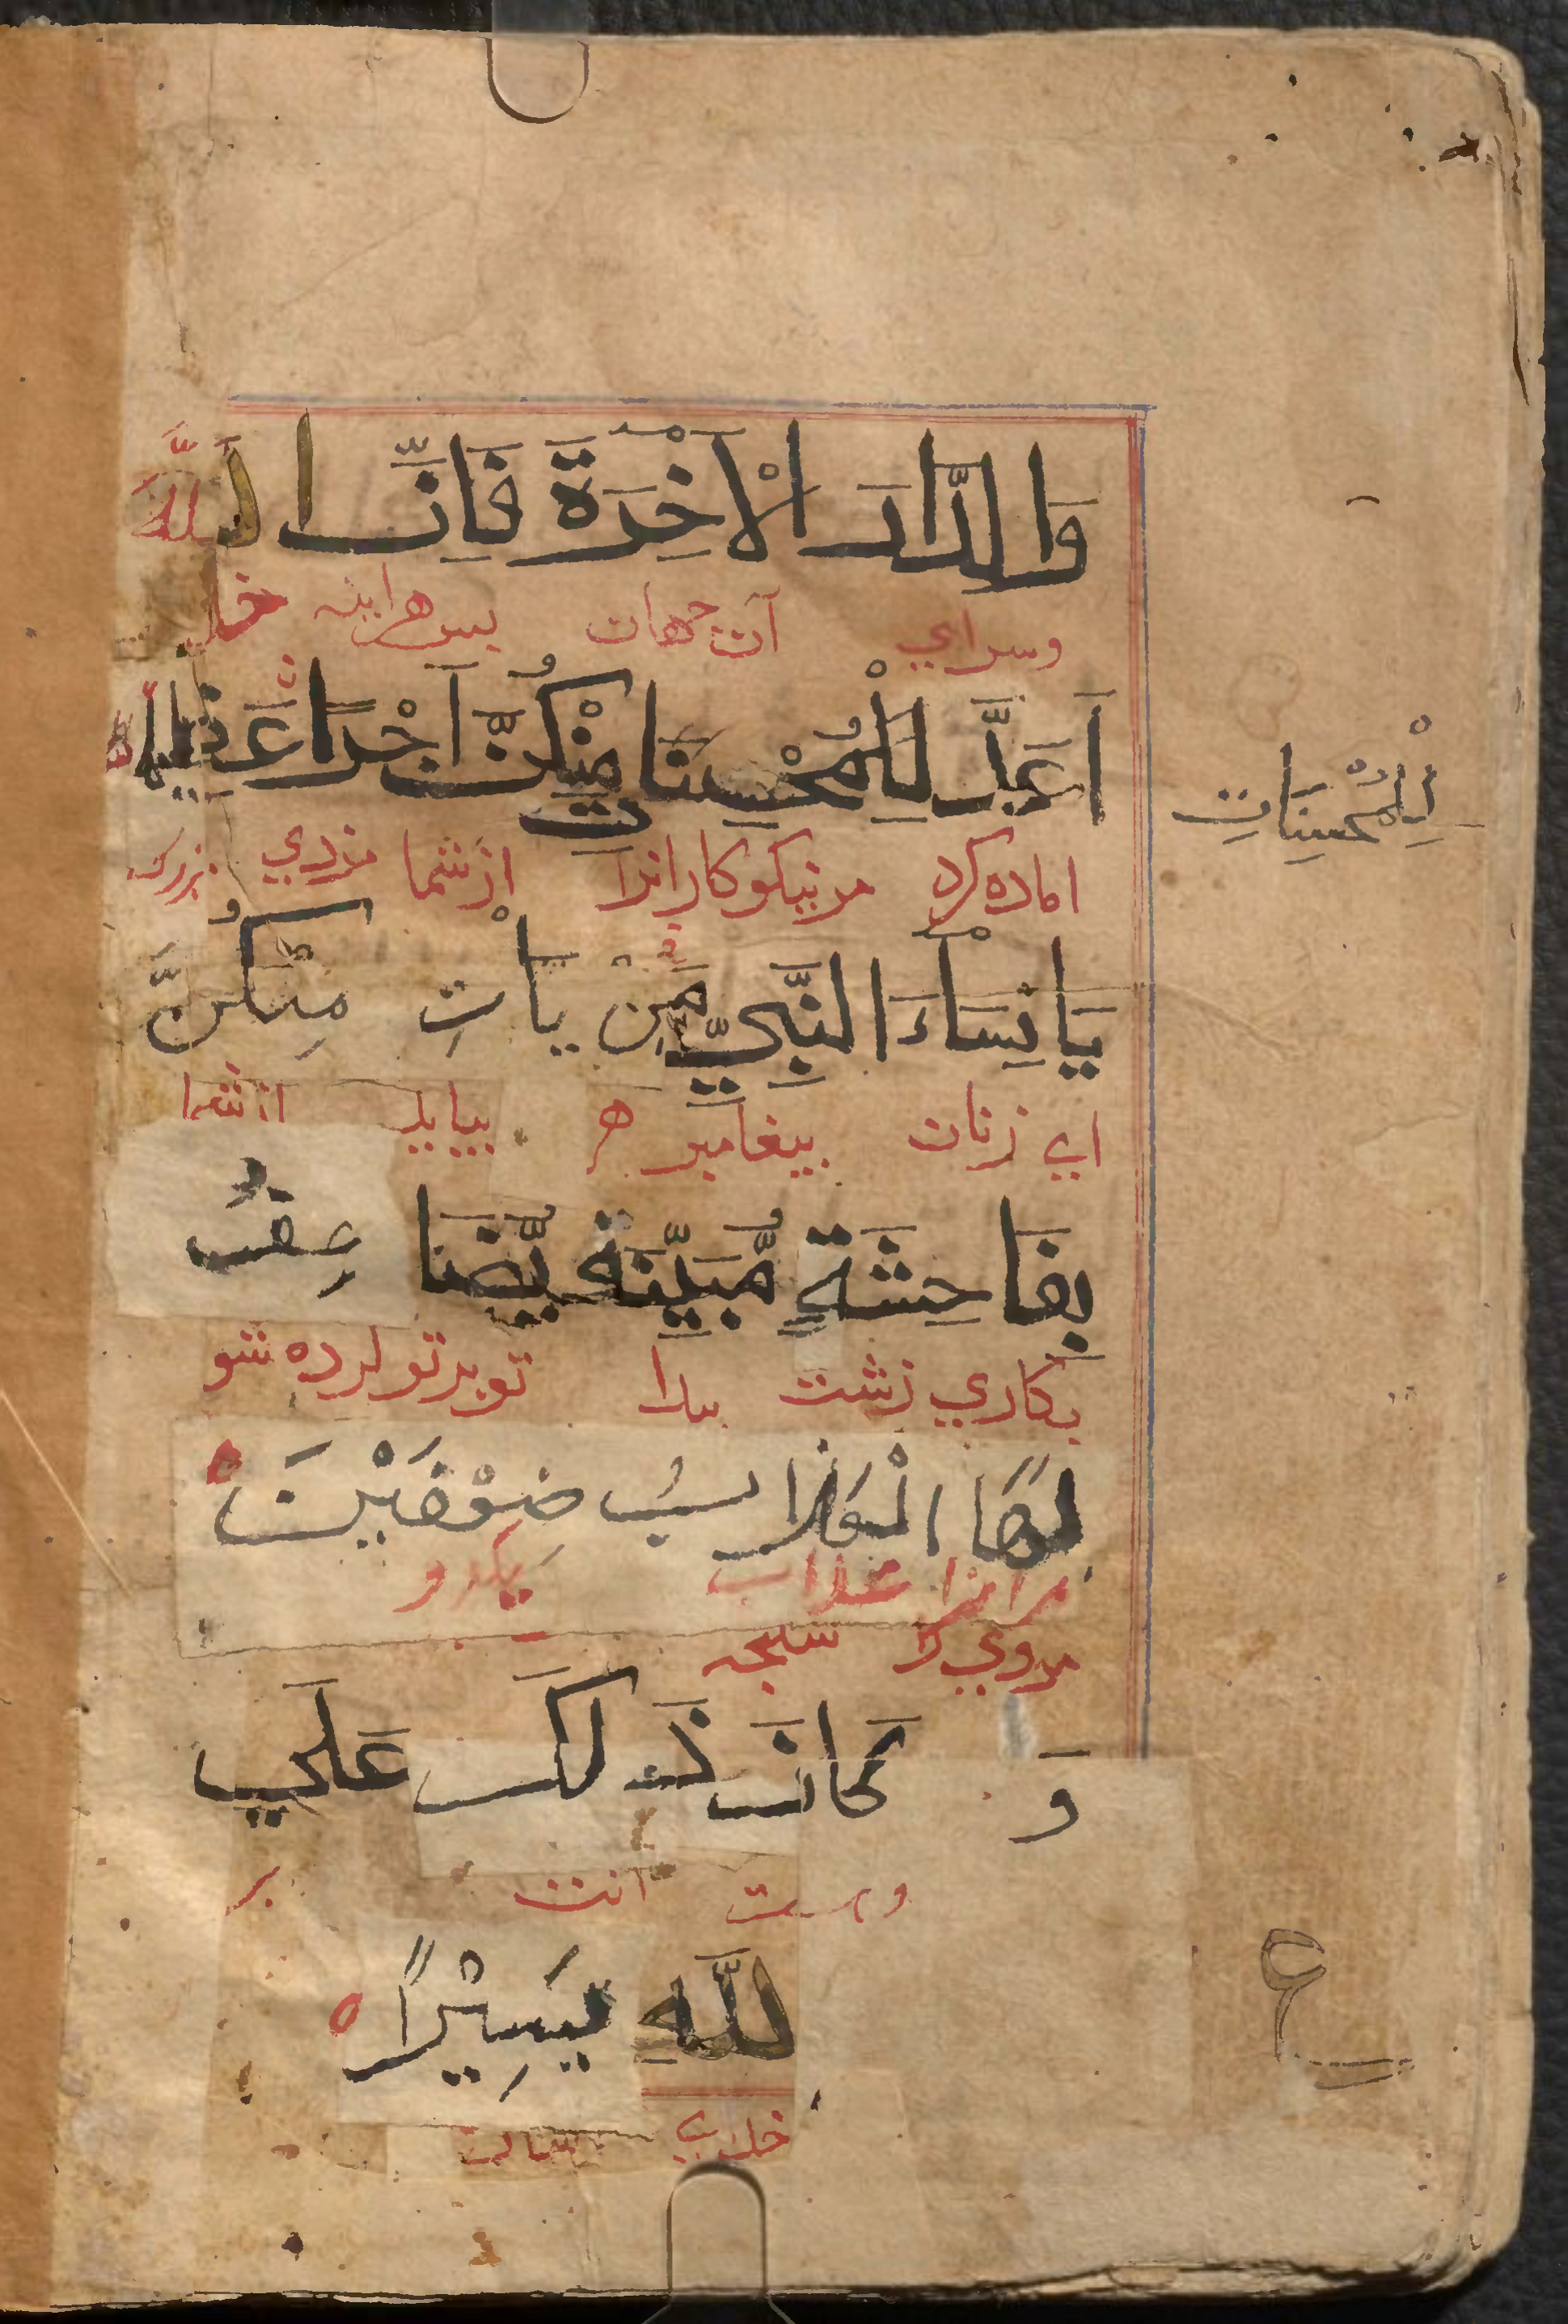 وَالدَّارَ الْآخِرَةَ فَاِنَّ اللّٰهَ
وسراي آن جهان بس هراينه خدا
اَعَدَّ لِلْمُحْسِنَاتِ مِنْكُنَّ اَجْرًا عَظِيمًا
لِلْمُحْسِنَاتِ
اماده کرد مر نيکو کارانرا از شما مزدي بزرك
يَا نِسَاءَ النَّبِيِّ مَنْ يَأْتِ مِنْكُنَّ
اي زنان بيغامبر هر بيايد از شما
بِفَاحِشَةٍ مُّبَيِّنَةٍ يُّضَا عَفْ
بکاري زشت بيدا توبرتو کرده شو
لَهَا الْعَذَابُ ضِعْفَيْنِ
مرانرا عذاب
مروي را
وَ كَانَ ذَلِكَ عَلَي
و هست آنت بر
اللَّهِ يَسِيْرًا
خداي
ع